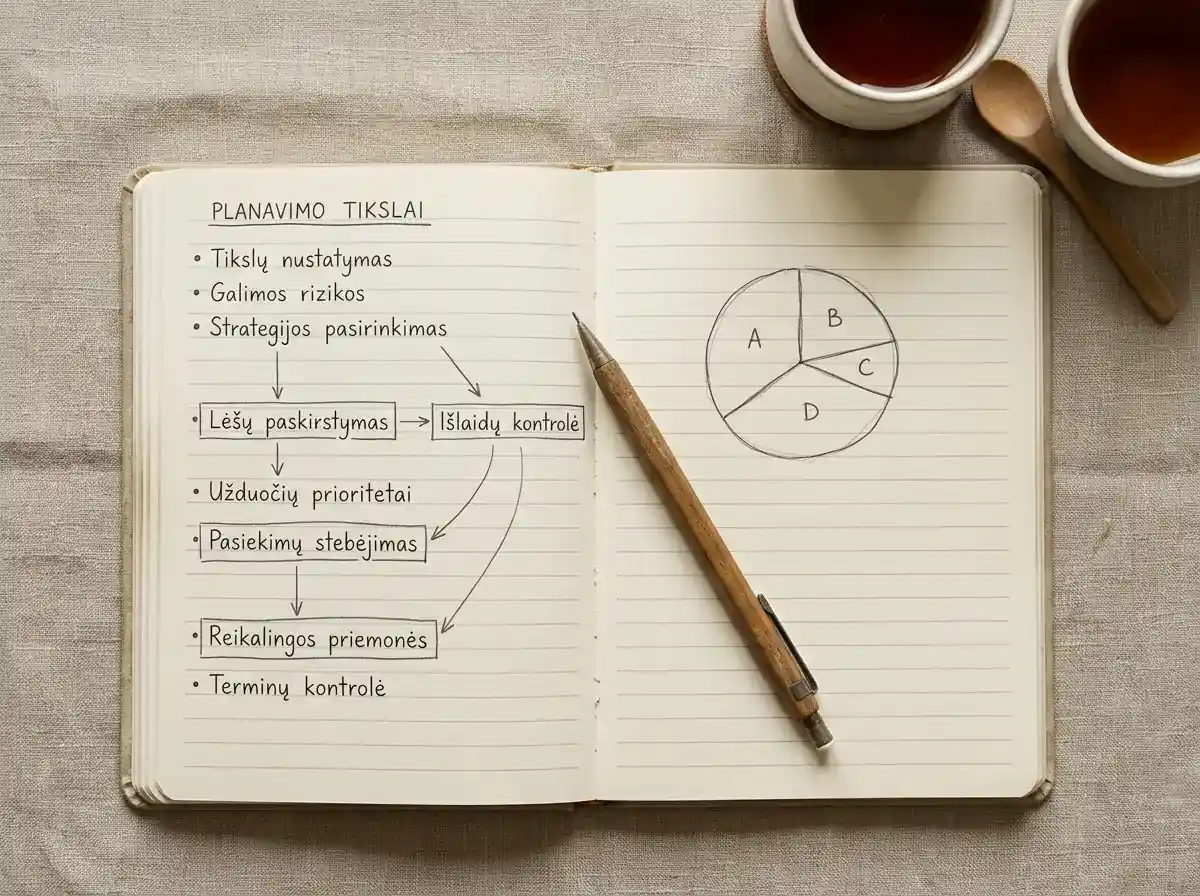 PLANAVIMO TIKSLAI
• Tikslų nustatymas
• Galimos rizikos
• Strategijos pasirinkimas
• Lėšų paskirstymas
Išlaidų kontrolė
• Užduočių prioritetai
• Pasiekimų stebėjimas
• Reikalingos priemonės
• Terminų kontrolė
A
B
C
D